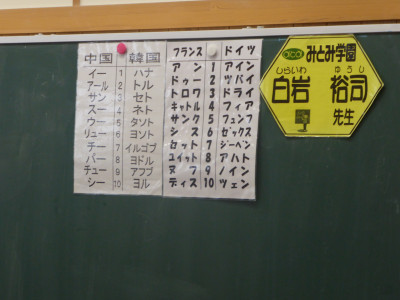 中国 韓国
イー 1 ハナ
アール 2 トル
サン 3 セト
スー 4 ネト
ウー 5 タソト
リュー 6 ヨソト
チー 7 イルゴプ
パー 8 ヨドル
チュー 9 アフプ
シー 10 ヨル
フランス ドイツ
アン 1 アイン
ドゥー 2 ツバイ
トロワ 3 ドライ
キャトル 4 フィア
サンク 5 フュンフ
シス 6 ゼックス
セット 7 ジーベン
ユイット 8 アハト
ヌフ 9 ノイン
ディス 10 ツェン
みとみ学園
しらいわ ゆうじ
白岩 裕司
先生